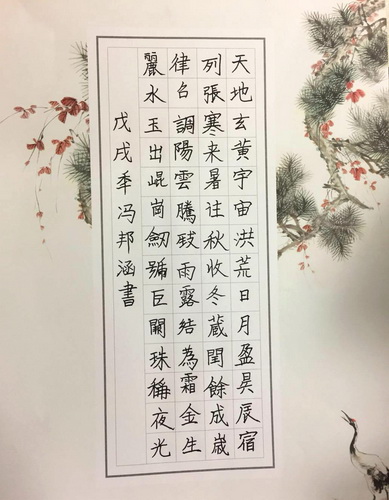 天地玄黃宇宙洪荒日月盈昃辰宿
列張寒来暑往秋收冬蔵閏餘成歲
律召調陽雲騰致雨露結為霜金生
麗水玉出崐崗劒號巨闕珠稱夜光
戊戌秊冯邦涵書